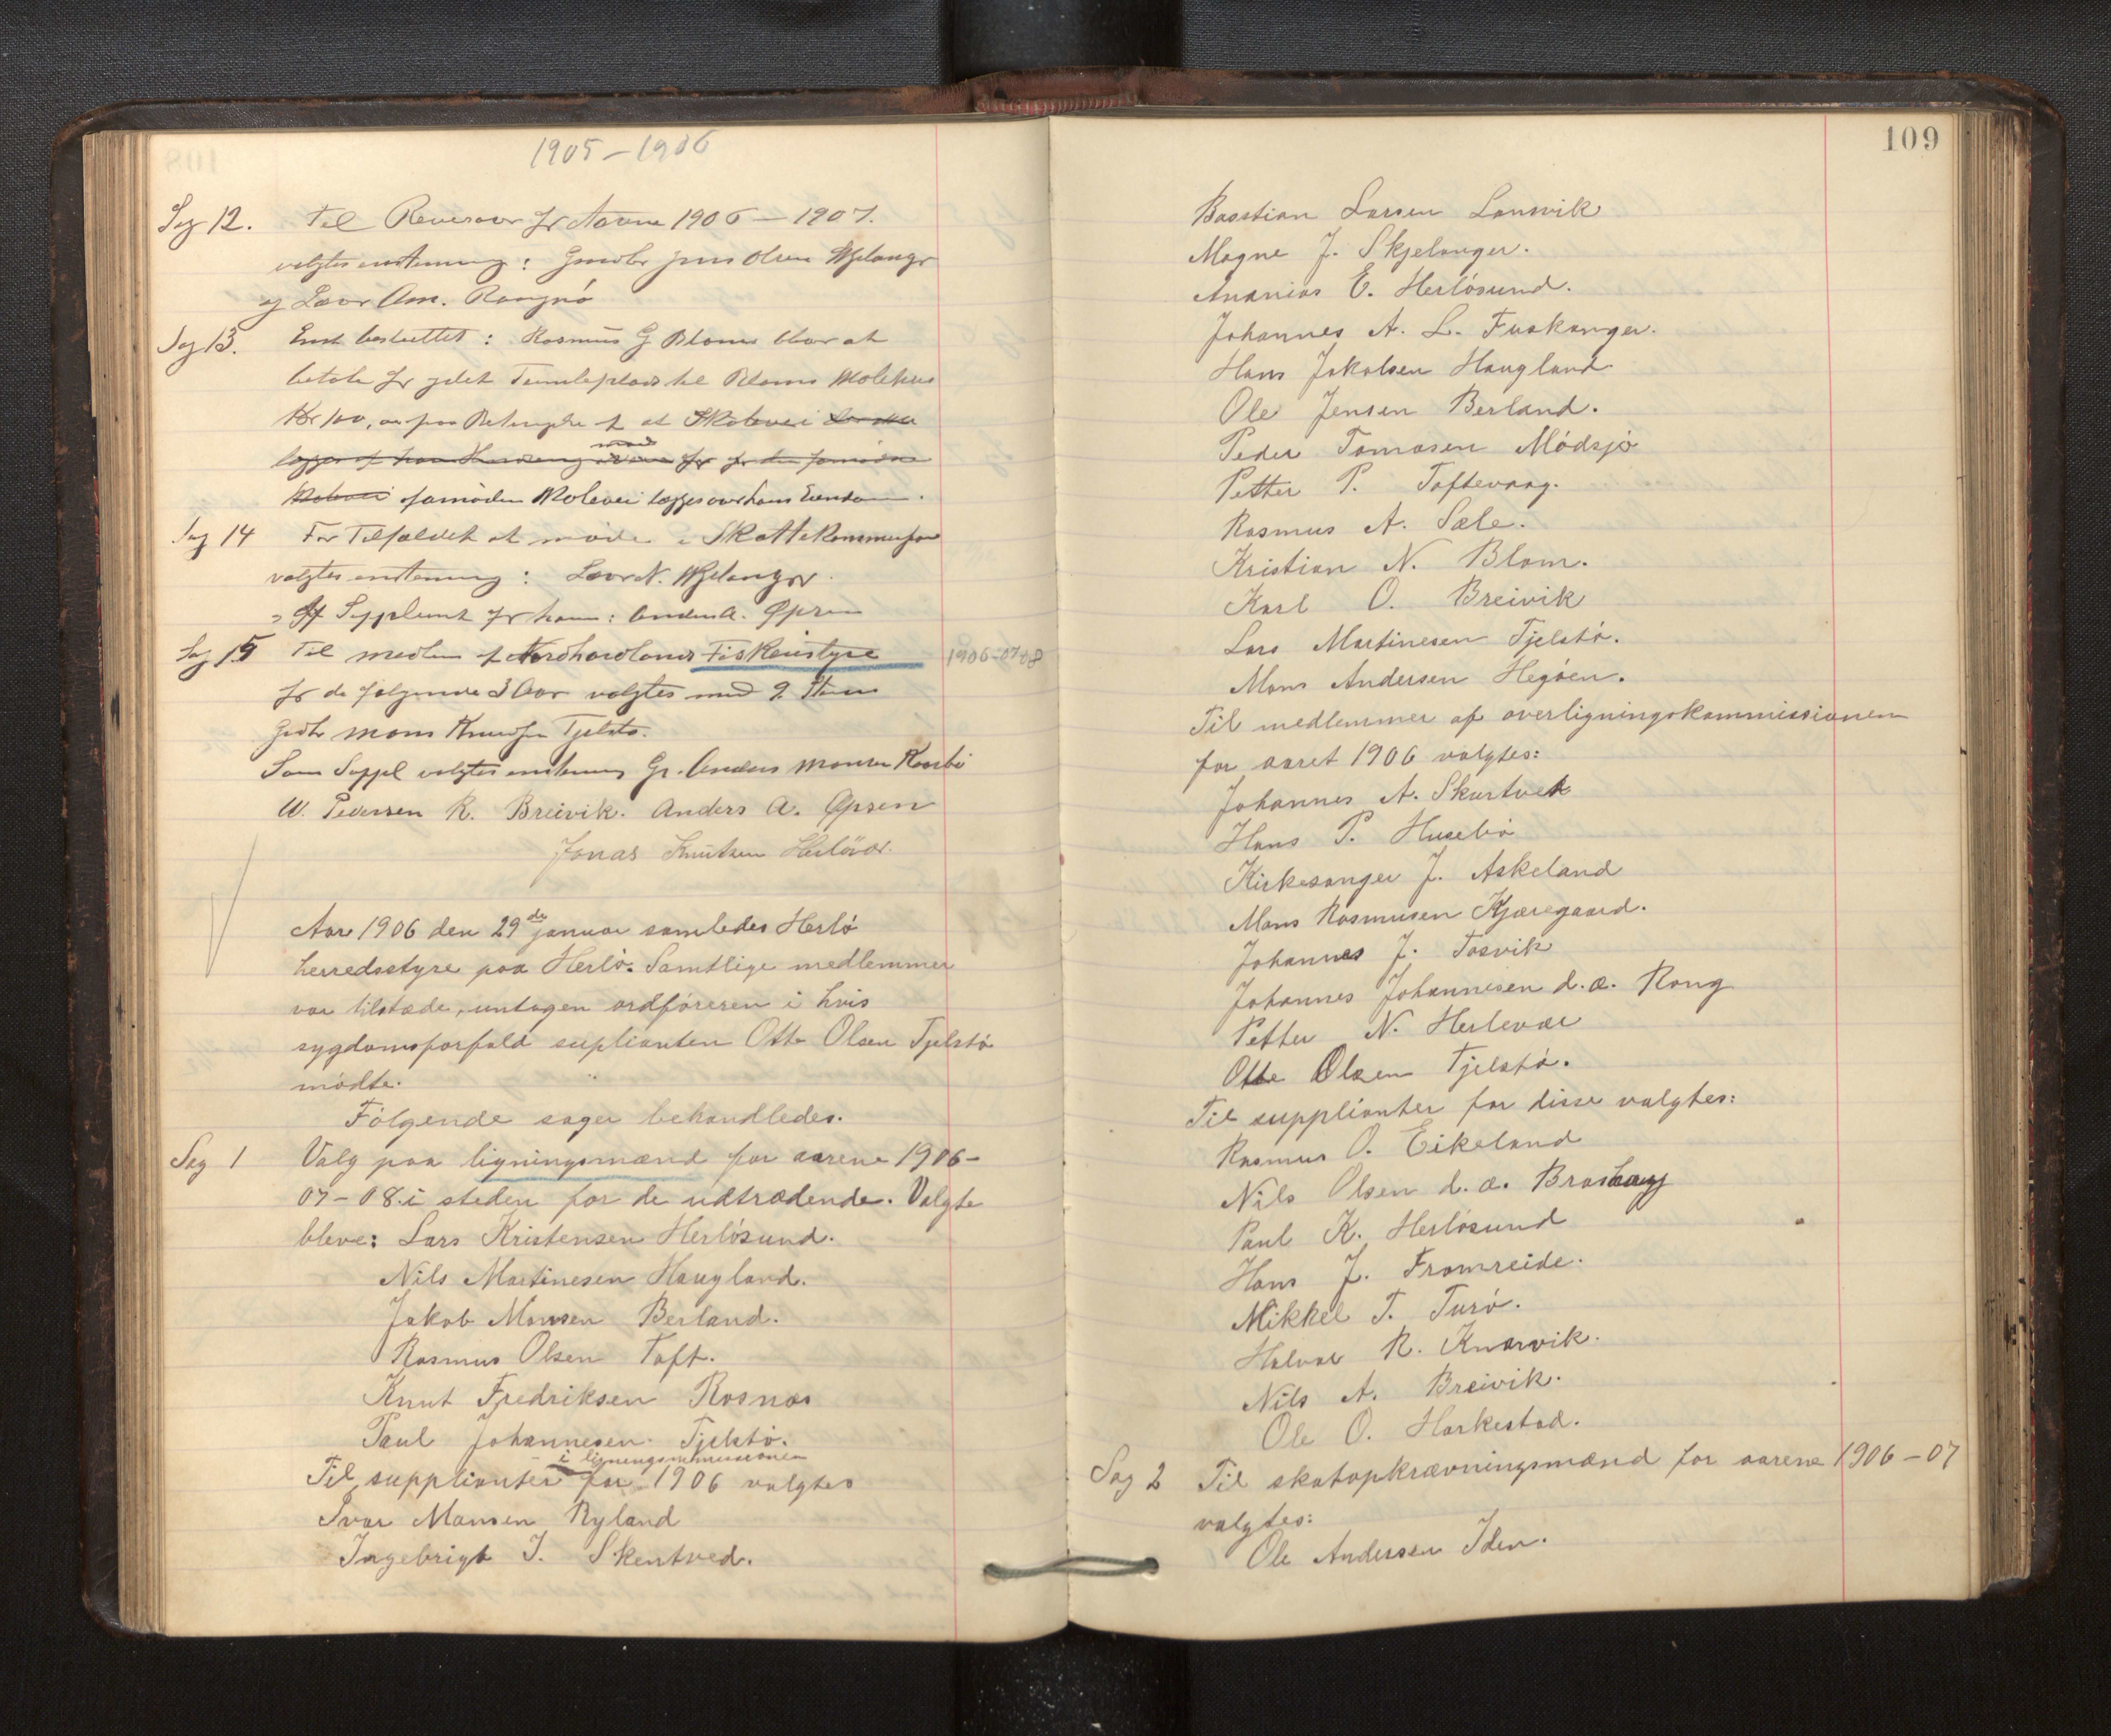 1905-1906
Sag 12. Til Revisorer for Aarene 1906-1907.
valgtes enstemmig: Gmdbr Jens Olsen Skjelanger
og Lars Am. Rangnö
Sag 13. Enst besluttet: Rasmus G Blom
betale for ydet Tomteplads til Bloms Skolehus
Kr 100, paa Betingelse af at Skolevei
famöden Skolevei lægges over hans Eiendom.
Sag 14 For Tilfældet at möde i Skattekommisjon
valgtes enstemmig: Lars N. Skjelanger.
Supplient for ham: Anders A. Øpsen
Sag 15 Til medlem af Nordhordlands Fiskeristyre 1906-07-08
for de følgende 3 Aar valgtes med 9 Stem
Gmdbr Mons Knudsen Tjeldstö.
Som Suppl valgtes enstemmig Gr. Anders Monsen
W. Pedersen R. Breivik. Anders A. Øpsen
Jonas Knutsen Herlövær.
Aar 1906 den 29de januar samledes Herlö
herredsstyre paa Herlö. Samtlige medlemmer
var tilstæde, untagen ordföreren i hvis
sygdomsforfald suplianten Otto Olsen Tjelstö
mödte.
Fölgende sager behandledes.
Sag 1 Valg paa ligningsmænd for aarene 1906-
07-08 i steden for de udtrædende. Valgte
bleve: Lars Kristensen Herlösund.
Nils Martinesen Haugland.
Jakob Monsen Berland.
Rasmus Olsen Toft.
Knut Fredriksen Rosnæs
Paul Johannesen Tjelstö.
i ligningskommissionen
Til supplianter for 1906 valgtes
Ivar Monsen Ryland
Ingebrigt I. Skentved.
109
Basstian Larsen Lonsvik
Magne J. Skjelanger.
Ananias E. Herlösund.
Johannes A. L. Fuskanger.
Hans Jakobsen Haugland.
Ole Jensen Berland.
Peder Tomasen Mödsjö
Petter P. Toftevaag.
Rasmus A. Sæle.
Kristian N. Blom.
Karl O. Breivik
Lars Martinesen Tjelstö.
Mons Andersen Hegöen.
Til medlemmer af overligningskommissionen
for aaret 1906 valgtes:
Johannes A. Skurtvet
Hans P. Husebö
Kirkesanger J. Askeland
Mons Rasmusen Kjæregaard.
Johannes J. Tosvik
Johannes Johannesen d.æ. Rong
Petter N. Herlevær
Otte Olsen Tjelstö.
Til supplianter for disse valgtes:
Rasmus O. Eikeland
Nils Olsen d.æ. Brashaug
Paul K. Herlösund
Hans J. Fromreide.
Mikkel T. Turö.
Halvar R. Knarvik.
Nils A. Breivik.
Ole O. Harkestad.
Sag 2 Til skatopkrævningsmænd for aarene 1906-07
valgtes:
Ole Andersen Iden.